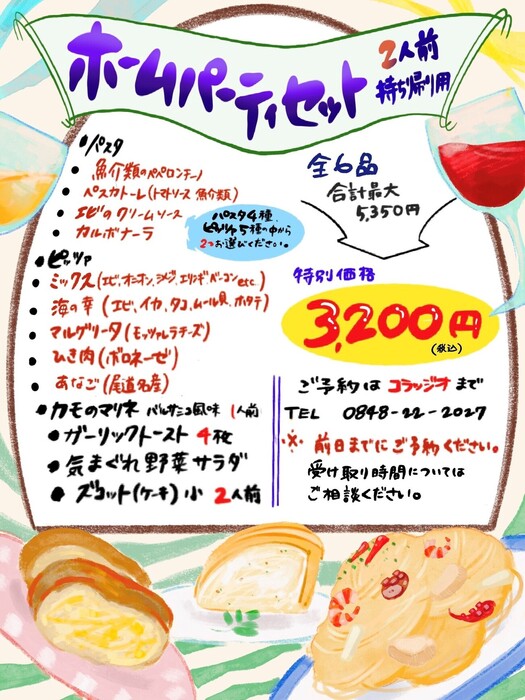 ホームパーティセット
2人前
持ち帰り用
・パスタ
・魚介類のペペロンチーノ
・ペスカトーレ(トマトソース 魚介類)
・エビのクリームソース
・カルボナーラ
パスタ4種、
ピッツァ5種の中から
2つお選びください。
・ピッツァ
・ミックス(エビ、オニオン、シメジ、エリンギ、ベーコンetc.)
・海の幸(エビ、イカ、タコ、ムール貝、ホタテ)
・マルゲリータ(モッツァレラチーズ)
・ひき肉(ボロネーゼ)
・あなご(尾道名産)
・カモのマリネ バルサミコ風味 1人前
・ガーリックトースト 4枚
・気まぐれ野菜サラダ
・ズコット(ケーキ)小 2人前
全6品
合計最大
5,350円
特別価格
3,200円
(税込)
ご予約はコラッジオまで
TEL 0848-22-2027
※前日までにご予約ください。
受け取り時間については
ご相談ください。